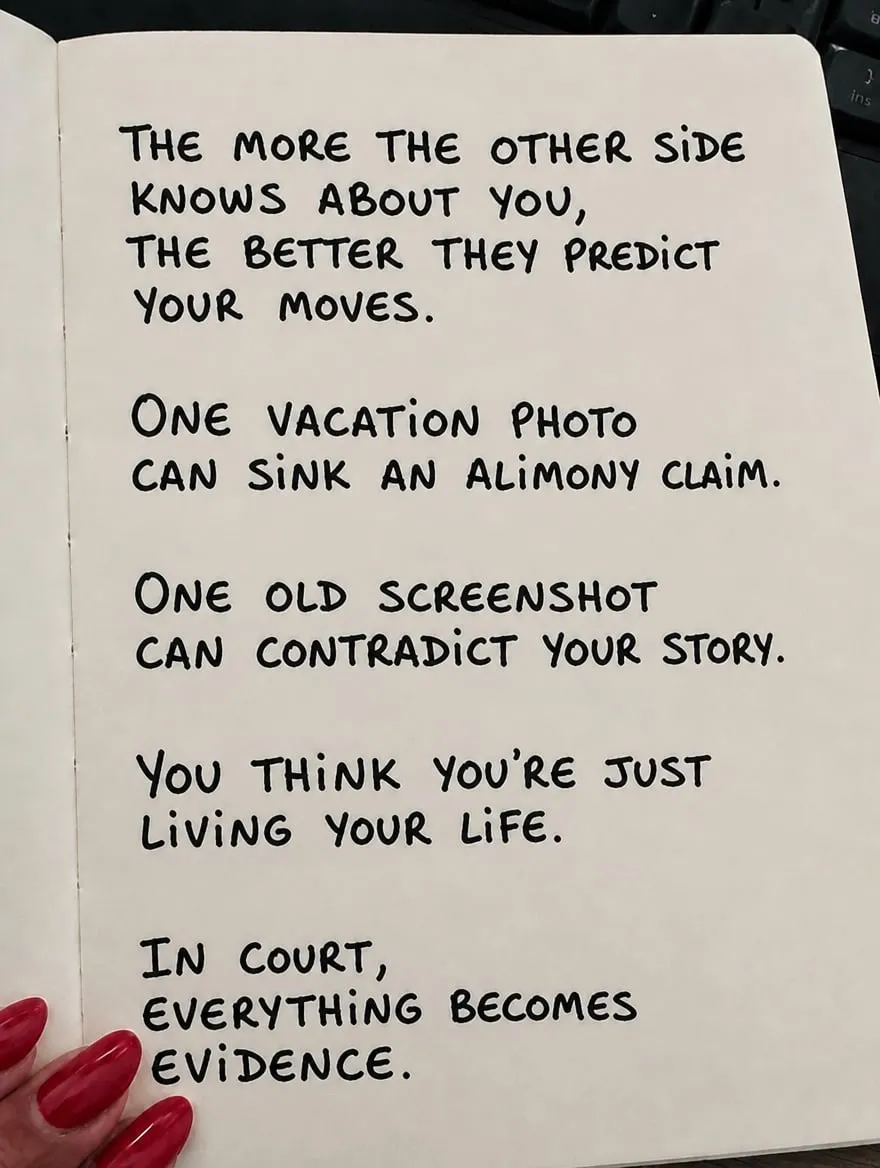 THE MORE THE OTHER SIDE
KNOWS ABOUT YOU,
THE BETTER THEY PREDICT
YOUR MOVES.
ONE VACATION PHOTO
CAN SINK AN ALIMONY CLAIM.
ONE OLD SCREENSHOT
CAN CONTRADICT YOUR STORY.
YOU THINK YOU'RE JUST
LIVING YOUR LIFE.
IN COURT,
EVERYTHING BECOMES
EVIDENCE.
ins